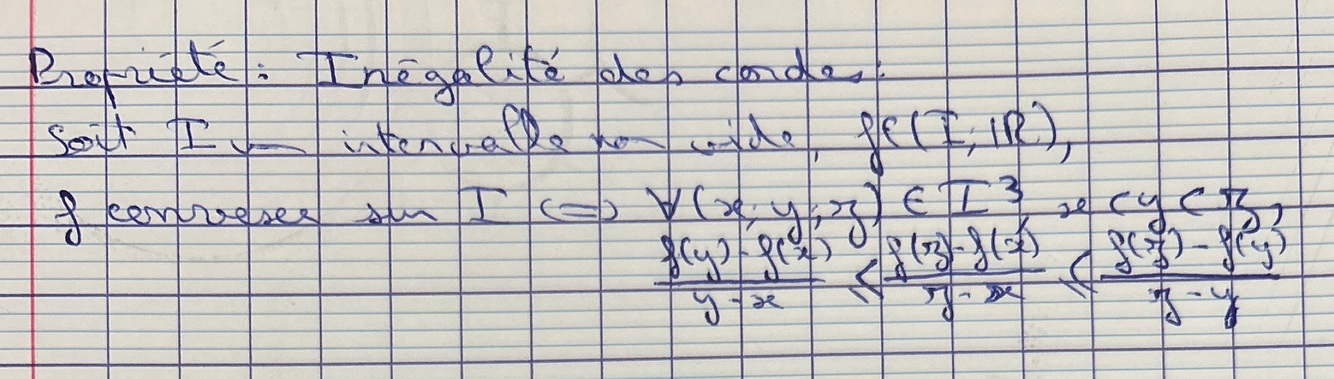 Propriété : Inégalité des cordes :
Soit I un intervalle non vide, f∈(I, ℝ),
f convexe sur I ⟺ ∀(x, y, z) ∈ I³, x < y < z,
(f(y) - f(x))/(y - x) ≤ (f(z) - f(x))/(z - x) ≤ (f(z) - f(y))/(z - y)